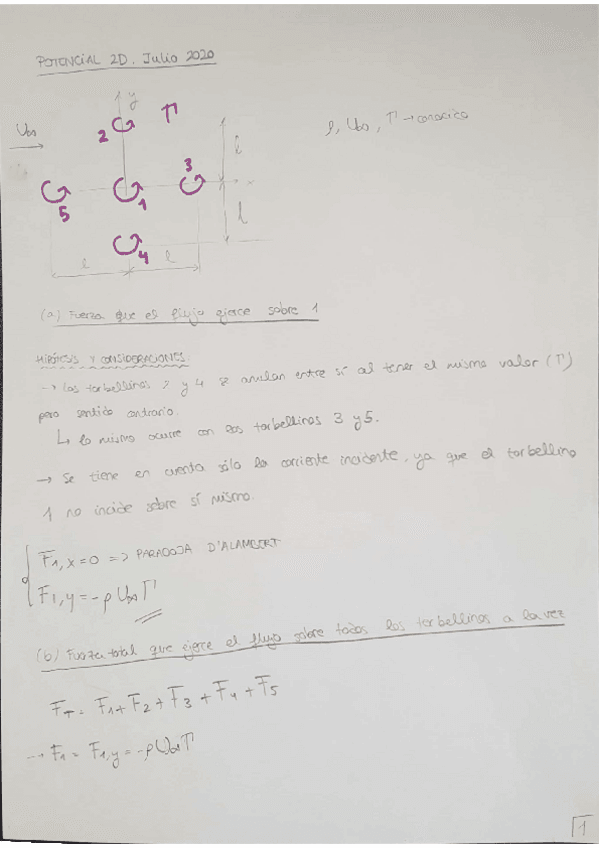 POTENCIAL 2D. Julio 2020
y
U∞
2
Γ
ρ, U∞, Γ → conocido
l
3
x
5
1
l
4
l
l
(a) Fuerza que el flujo ejerce sobre 1
HIPÓTESIS Y CONSIDERACIONES:
→ Los torbellinos 2 y 4 se anulan entre sí al tener el mismo valor (Γ)
pero sentido contrario.
↳ lo mismo ocurre con los torbellinos 3 y 5.
→ Se tiene en cuenta sólo la corriente incidente, ya que el torbellino
1 no incide sobre sí mismo.
F1,x = 0 => PARADOJA D'ALAMBERT
F1,y = -ρ U∞ Γ
(b) Fuerza total que ejerce el flujo sobre todos los torbellinos a la vez
FT = F1 + F2 + F3 + F4 + F5
→ F1 = F1,y = -ρ U∞ Γ
1